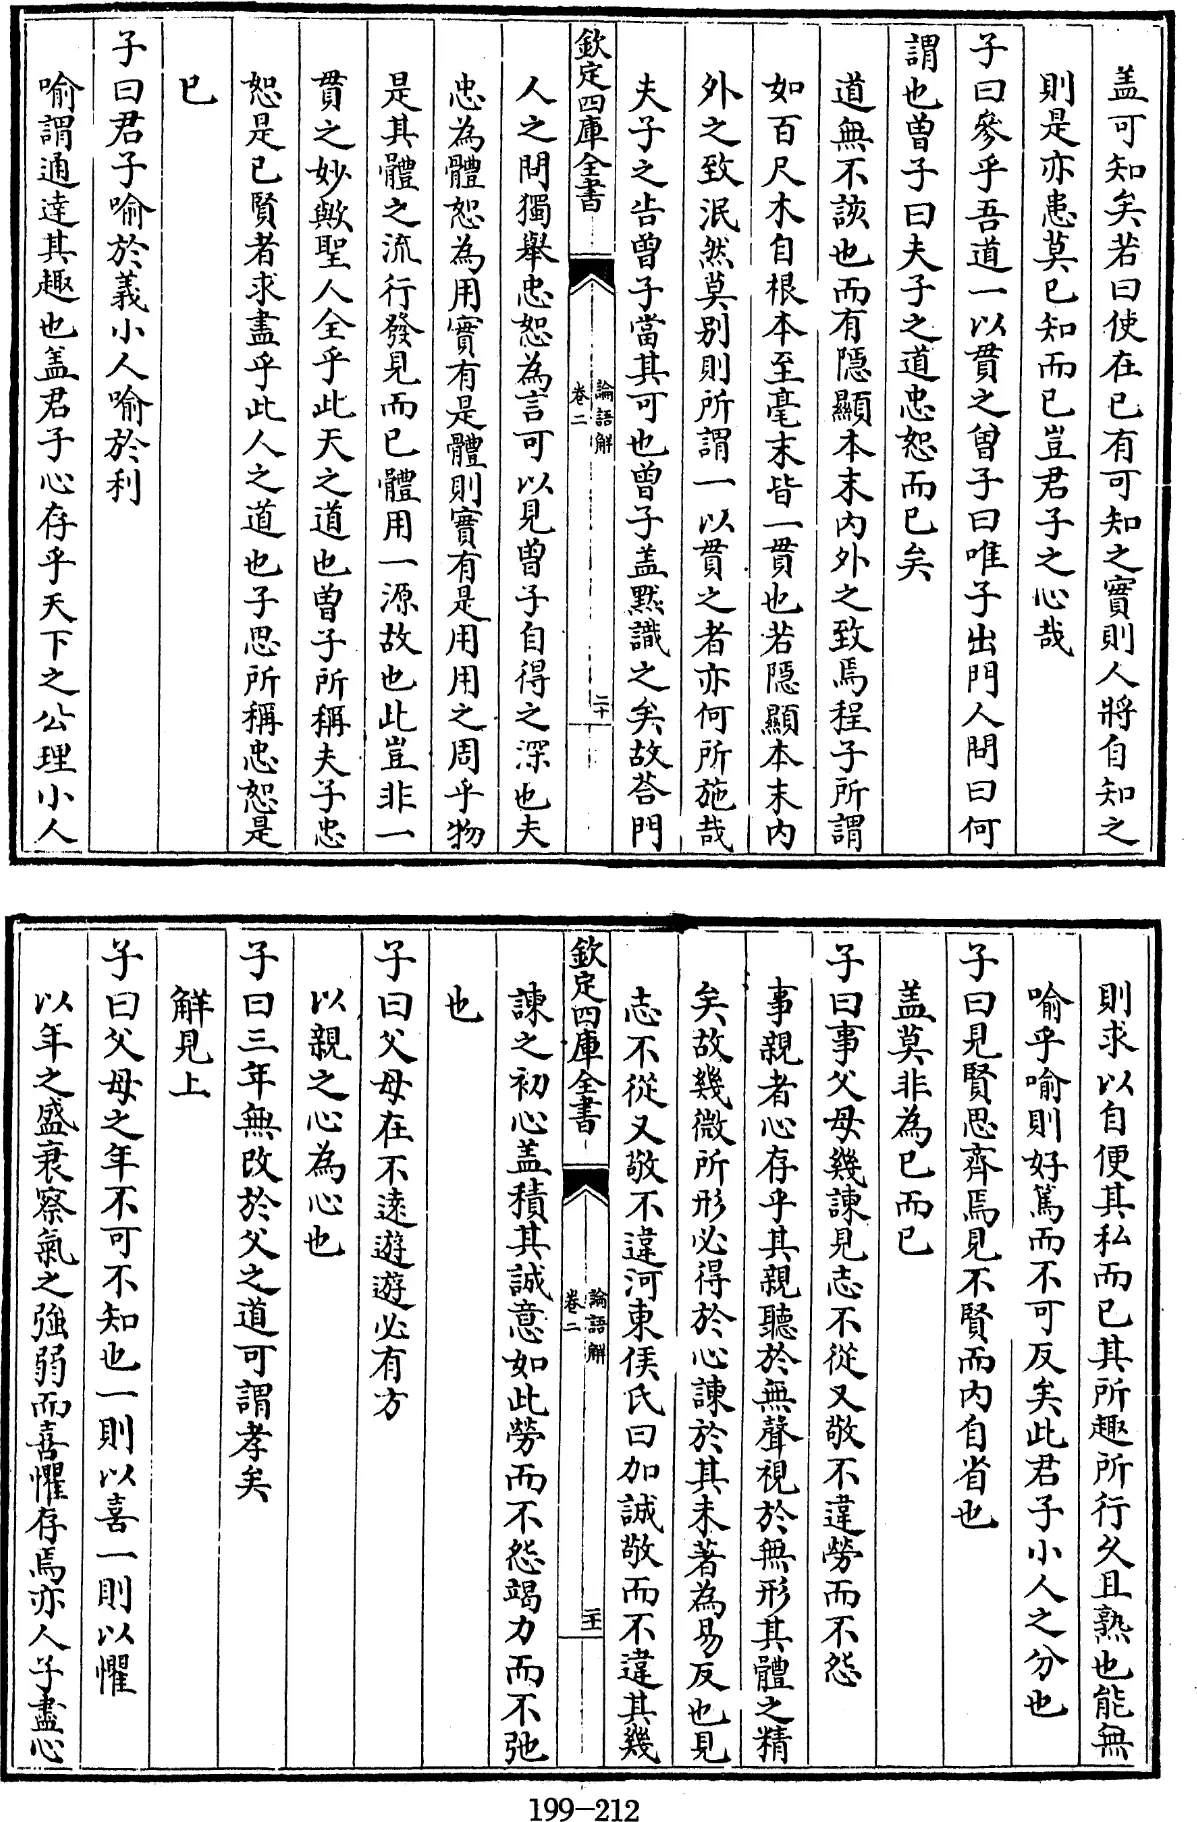 盖可知矣若曰使在已有可知之實則人將自知之
則是亦患莫已知而已豈君子之心哉
子曰參乎吾道一以貫之曾子曰唯子出門人問曰何
謂也曾子曰夫子之道忠恕而已矣
道無不該也而有隱顯本末内外之致焉程子所謂
如百尺木自根本至毫末皆一貫也若隱顯本末内
外之致泯然莫别則所謂一以貫之者亦何所施哉
夫子之告曾子當其可也曾子盖黙識之矣故荅門
欽定四庫全書
論語解
卷二
二十
人之問獨舉忠恕為言可以見曾子自得之深也夫
忠為體恕為用實有是體則實有是用用之周乎物
是其體之流行發見而已體用一源故也此豈非一
貫之妙歟聖人全乎此天之道也曾子所稱夫子忠
恕是已賢者求盡乎此人之道也子思所稱忠恕是
已
子曰君子喻於義小人喻於利
喻謂通達其趣也盖君子心存乎天下之公理小人
則求以自便其私而已其所趣所行久且熟也能無
喻乎喻則好篤而不可反矣此君子小人之分也
子曰見賢思齊焉見不賢而内自省也
盖莫非為已而已
子曰事父母幾諫見志不從又敬不違勞而不怨
事親者心存乎其親聽於無聲視於無形其體之精
矣故幾微所形必得於心諫於其未著為易反也見
志不從又敬不違河東侯氏曰加誠敬而不違其幾
欽定四庫全書
論語解
卷二
二十一
諫之初心盖積其誠意如此勞而不怨竭力而不弛
也
子曰父母在不遠遊遊必有方
以親之心為心也
子曰三年無改於父之道可謂孝矣
解見上
子曰父母之年不可不知也一則以喜一則以懼
以年之盛衰察氣之強弱而喜懼存焉亦人子盡心
199-212